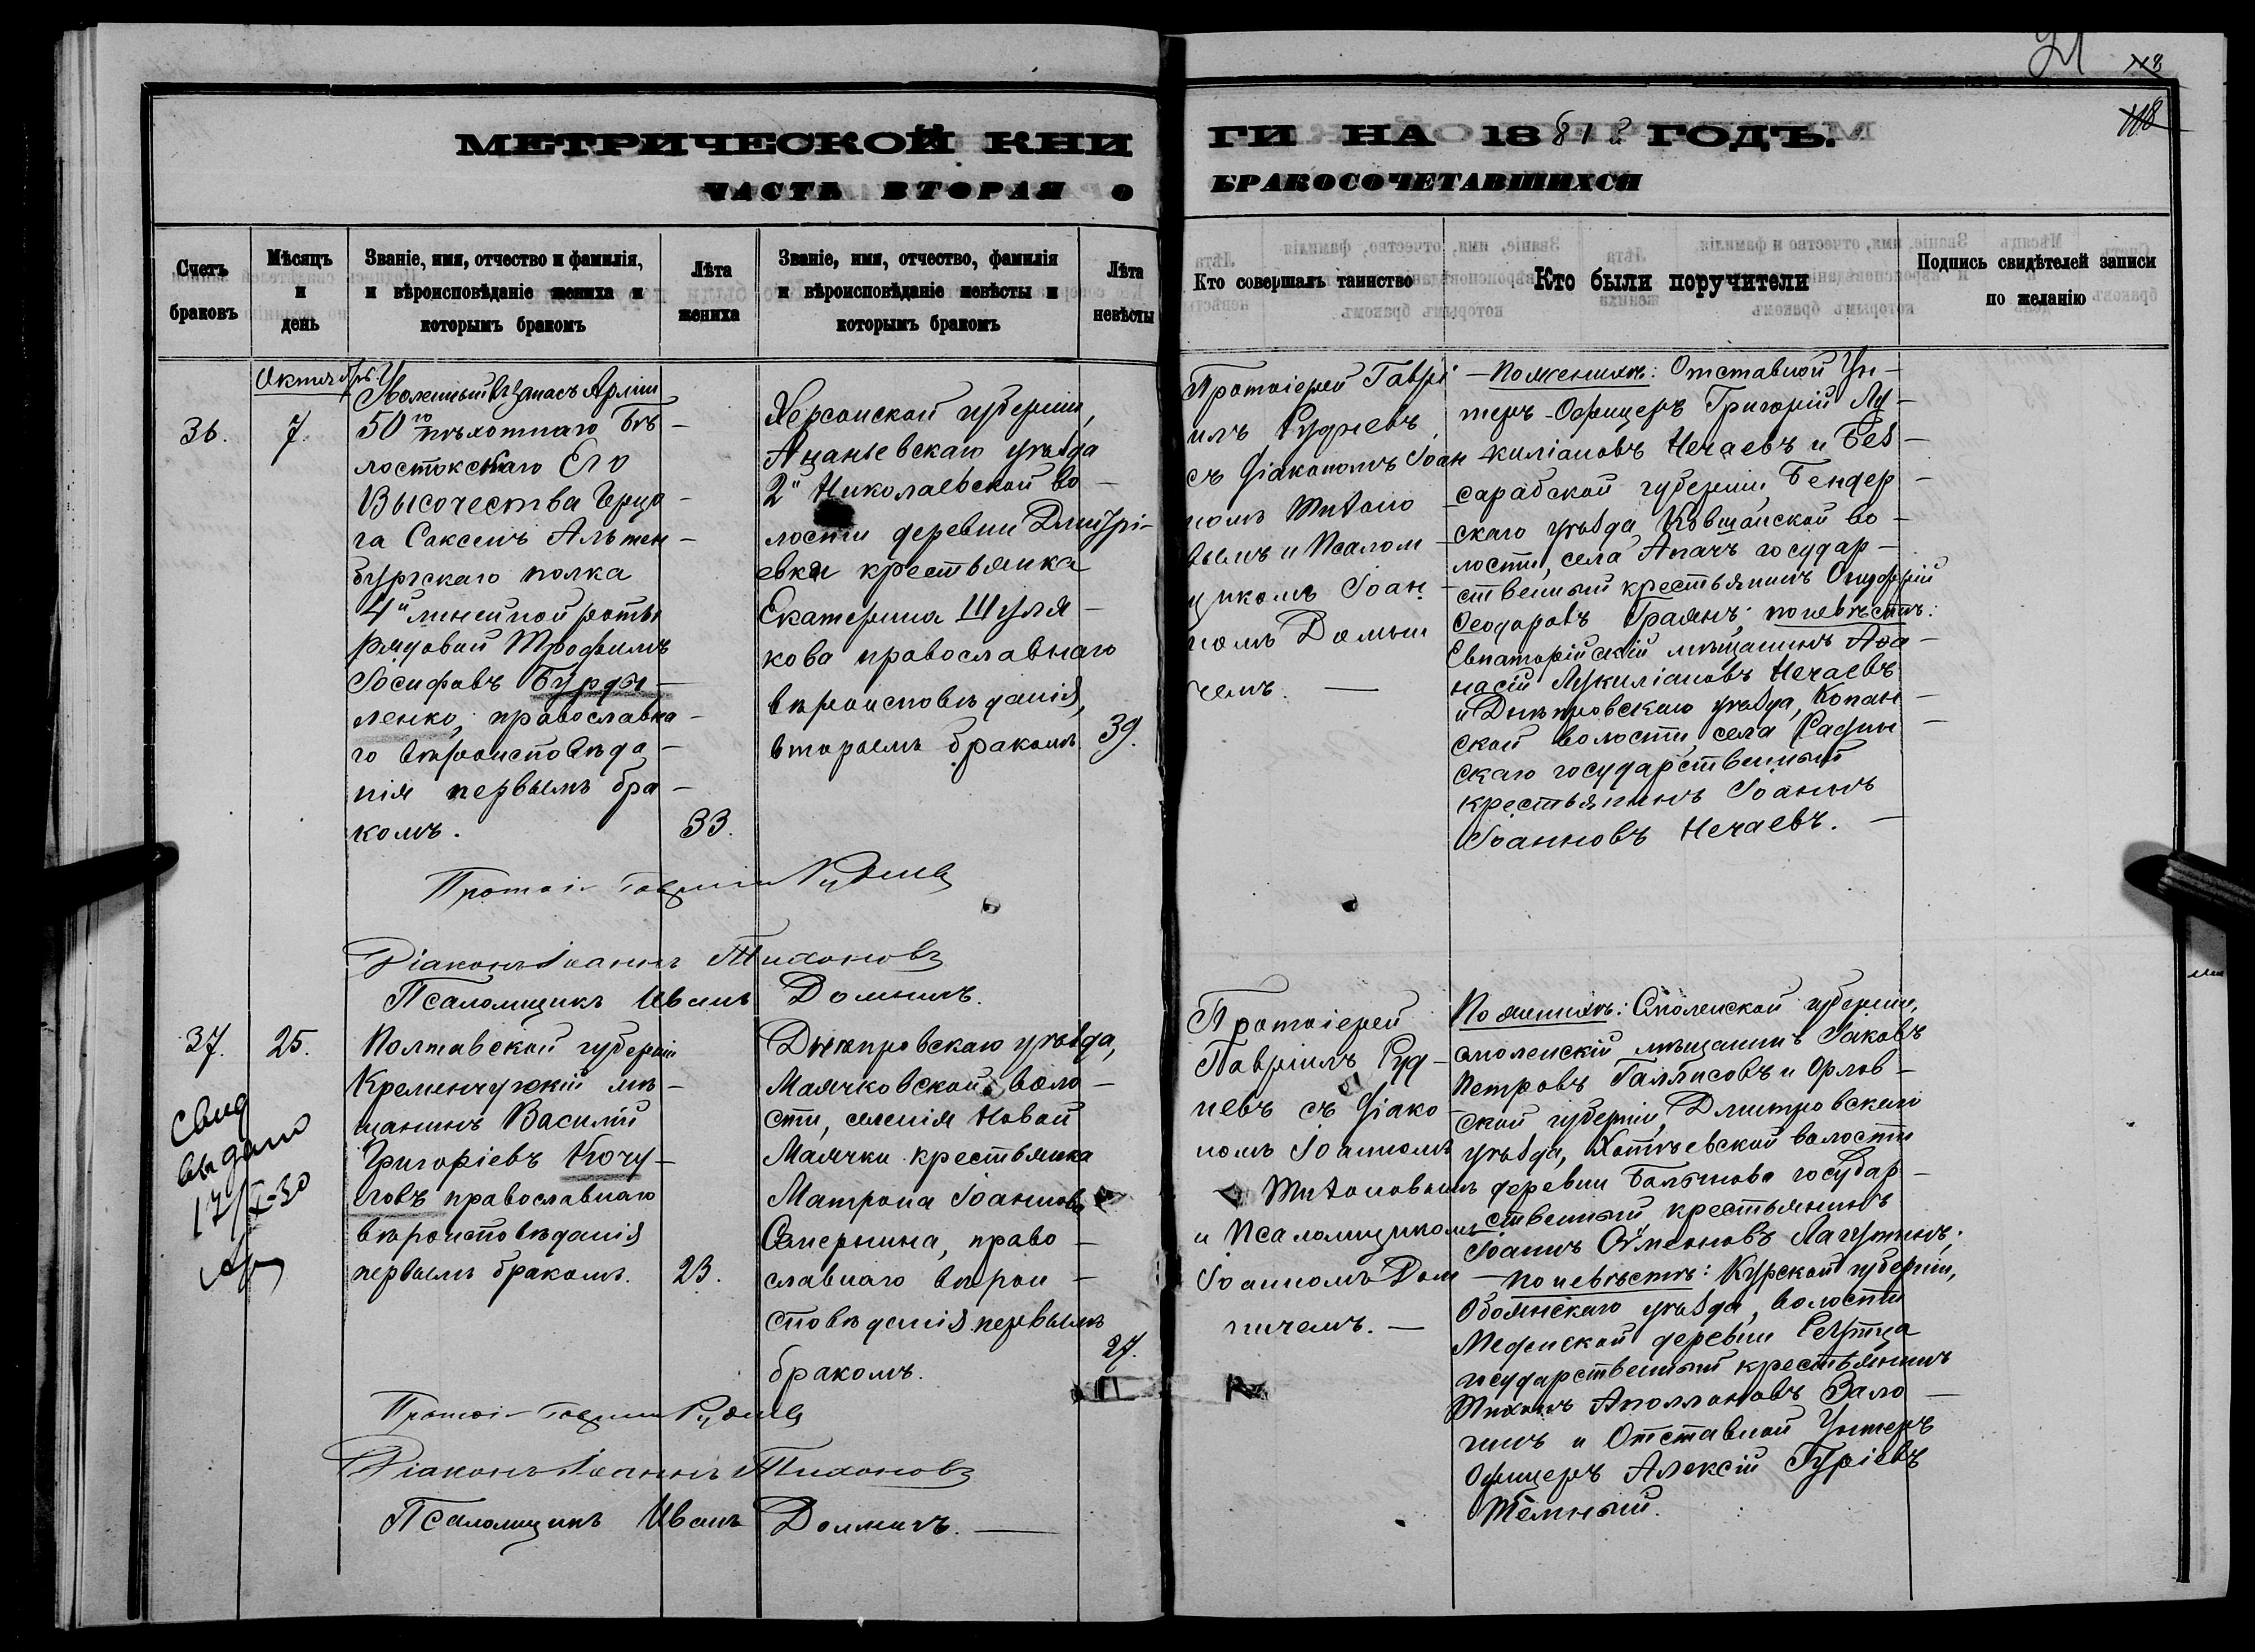 91
118
118
МЕТРИЧЕСКОЙ КНИ
ГИ НА 1881й ГОДЪ.
ЧАСТЬ ВТОРАЯ О
БРАКОСОЧЕТАВШИХСЯ
Счетъ
браковъ
Мѣсяцъ
и
день
Званіе, имя, отчество и фамилія,
и вѣроисповѣданіе жениха и
которымъ бракомъ
Лѣта
жениха
Званіе, имя, отчество, фамилія
и вѣроисповѣданіе невѣсты и
которымъ бракомъ
Лѣта
невѣсты
Кто совершалъ таинство
Кто были поручители
Подпись свидѣтелей записи
по желанію
Октябрь
36.
7.
Уволенный въ запасъ Арміи
50го пѣхотнаго Бѣ-
лостокскаго Его
Высочества Герцо-
га Саксенъ Альтен-
бургскаго полка
4й линейной роты
рядовой Трофимъ
Іосифовъ Бурды-
ленко, православна-
го вѣроисповѣда-
нія первымъ бра-
комъ.
33.
Херсонской губерніи,
Ананьевскаго уѣзда
2й Николаевской во-
лости деревни Дмитрі-
евки крестьянка
Екатерина Шуля-
кова православнаго
вѣроисповѣданія,
вторымъ бракомъ.
39.
Протоіерей Гаврі-
илъ Рудневъ
съ Діакономъ Іоан-
номъ Тихоно-
вымъ и Псалом-
щикомъ Іоан-
номъ Домни-
чемъ. —
— По женихѣ: Отставной Ун-
теръ-Офицеръ Григорій Лу-
киліановъ Нечаевъ и Бес-
сарабской губерніи, Бендер-
скаго уѣзда, волости, села государ-
ственный крестьянинъ Онуфрій
Ѳеодоровъ Граянъ; по невѣстѣ:
Евпаторійскій мѣщанинъ Аѳа-
насій Лукиліановъ Нечаевъ
и Днѣпровскаго уѣзда, Копан-
ской волости, села Радин-
скаго государственный
крестьянинъ Іоаннъ
Іоанновъ Нечаевъ. —
Протоі- Гавріилъ Рудневъ
Діаконъ Іоаннъ Тихоновъ
Псаломщикъ Иванъ Домничъ.
37.
25.
Свид
выдано
17/X-30
Полтавской губерніи
Кременчугскій мѣ-
щанинъ Василій
Григоріевъ Кочу-
говъ православнаго
вѣроисповѣданія
первымъ бракомъ.
23.
Днѣпровскаго уѣзда,
Маячковской воло-
сти, селенія Новой
Маячки крестьянка
Матрона Іоаннова
Самернина, право-
славнаго вѣрои-
сповѣданія первымъ
бракомъ.
27.
Протоіерей
Гавріилъ Руд-
невъ съ Діако-
номъ Іоанномъ
Тихоновымъ
и Псаломщикомъ
Іоанномъ Дом-
ничемъ. —
По женихѣ: Смоленской губерніи,
смоленскій мѣщанинъ Іаковъ
Петровъ и Орлов-
ской губерніи, Дмитровскаго
уѣзда, Хотѣевской волости
деревни Балыкова государ-
ственный крестьянинъ
Іоаннъ Сѵмеоновъ Лагутинъ;
— по невѣстѣ: Курской губерніи,
Обоянскаго уѣзда, волости
Меденской деревни
государственный крестьянинъ
Тихонъ Аполлоновъ Зало-
гинъ и Отставной Унтеръ
Офицеръ Алексій Гуріевъ
Тёмный.
Протоі- Гавріилъ Рудневъ
Діаконъ Іоаннъ Тихоновъ
Псаломщикъ Иванъ Домничъ. —